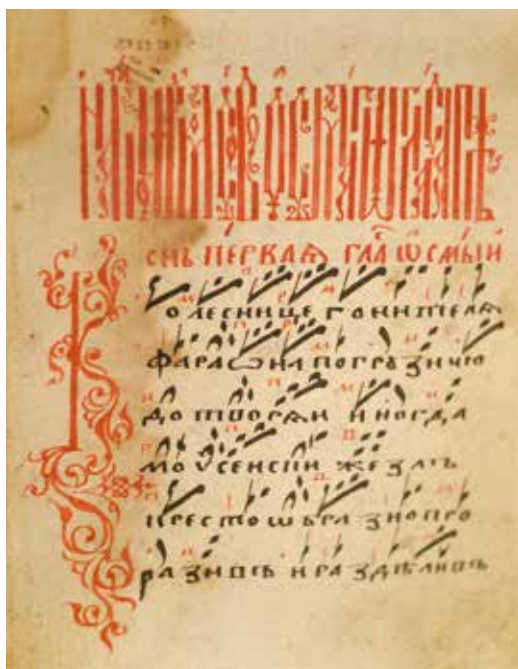 снь первая гла ѡсмыи
Колесницегонителѧ
фараѡна погрꙋзи чю
дотворѧи иногда
моѵсеиски жезлъ
крестоѡбразно про
разивъ и раздѣливъ